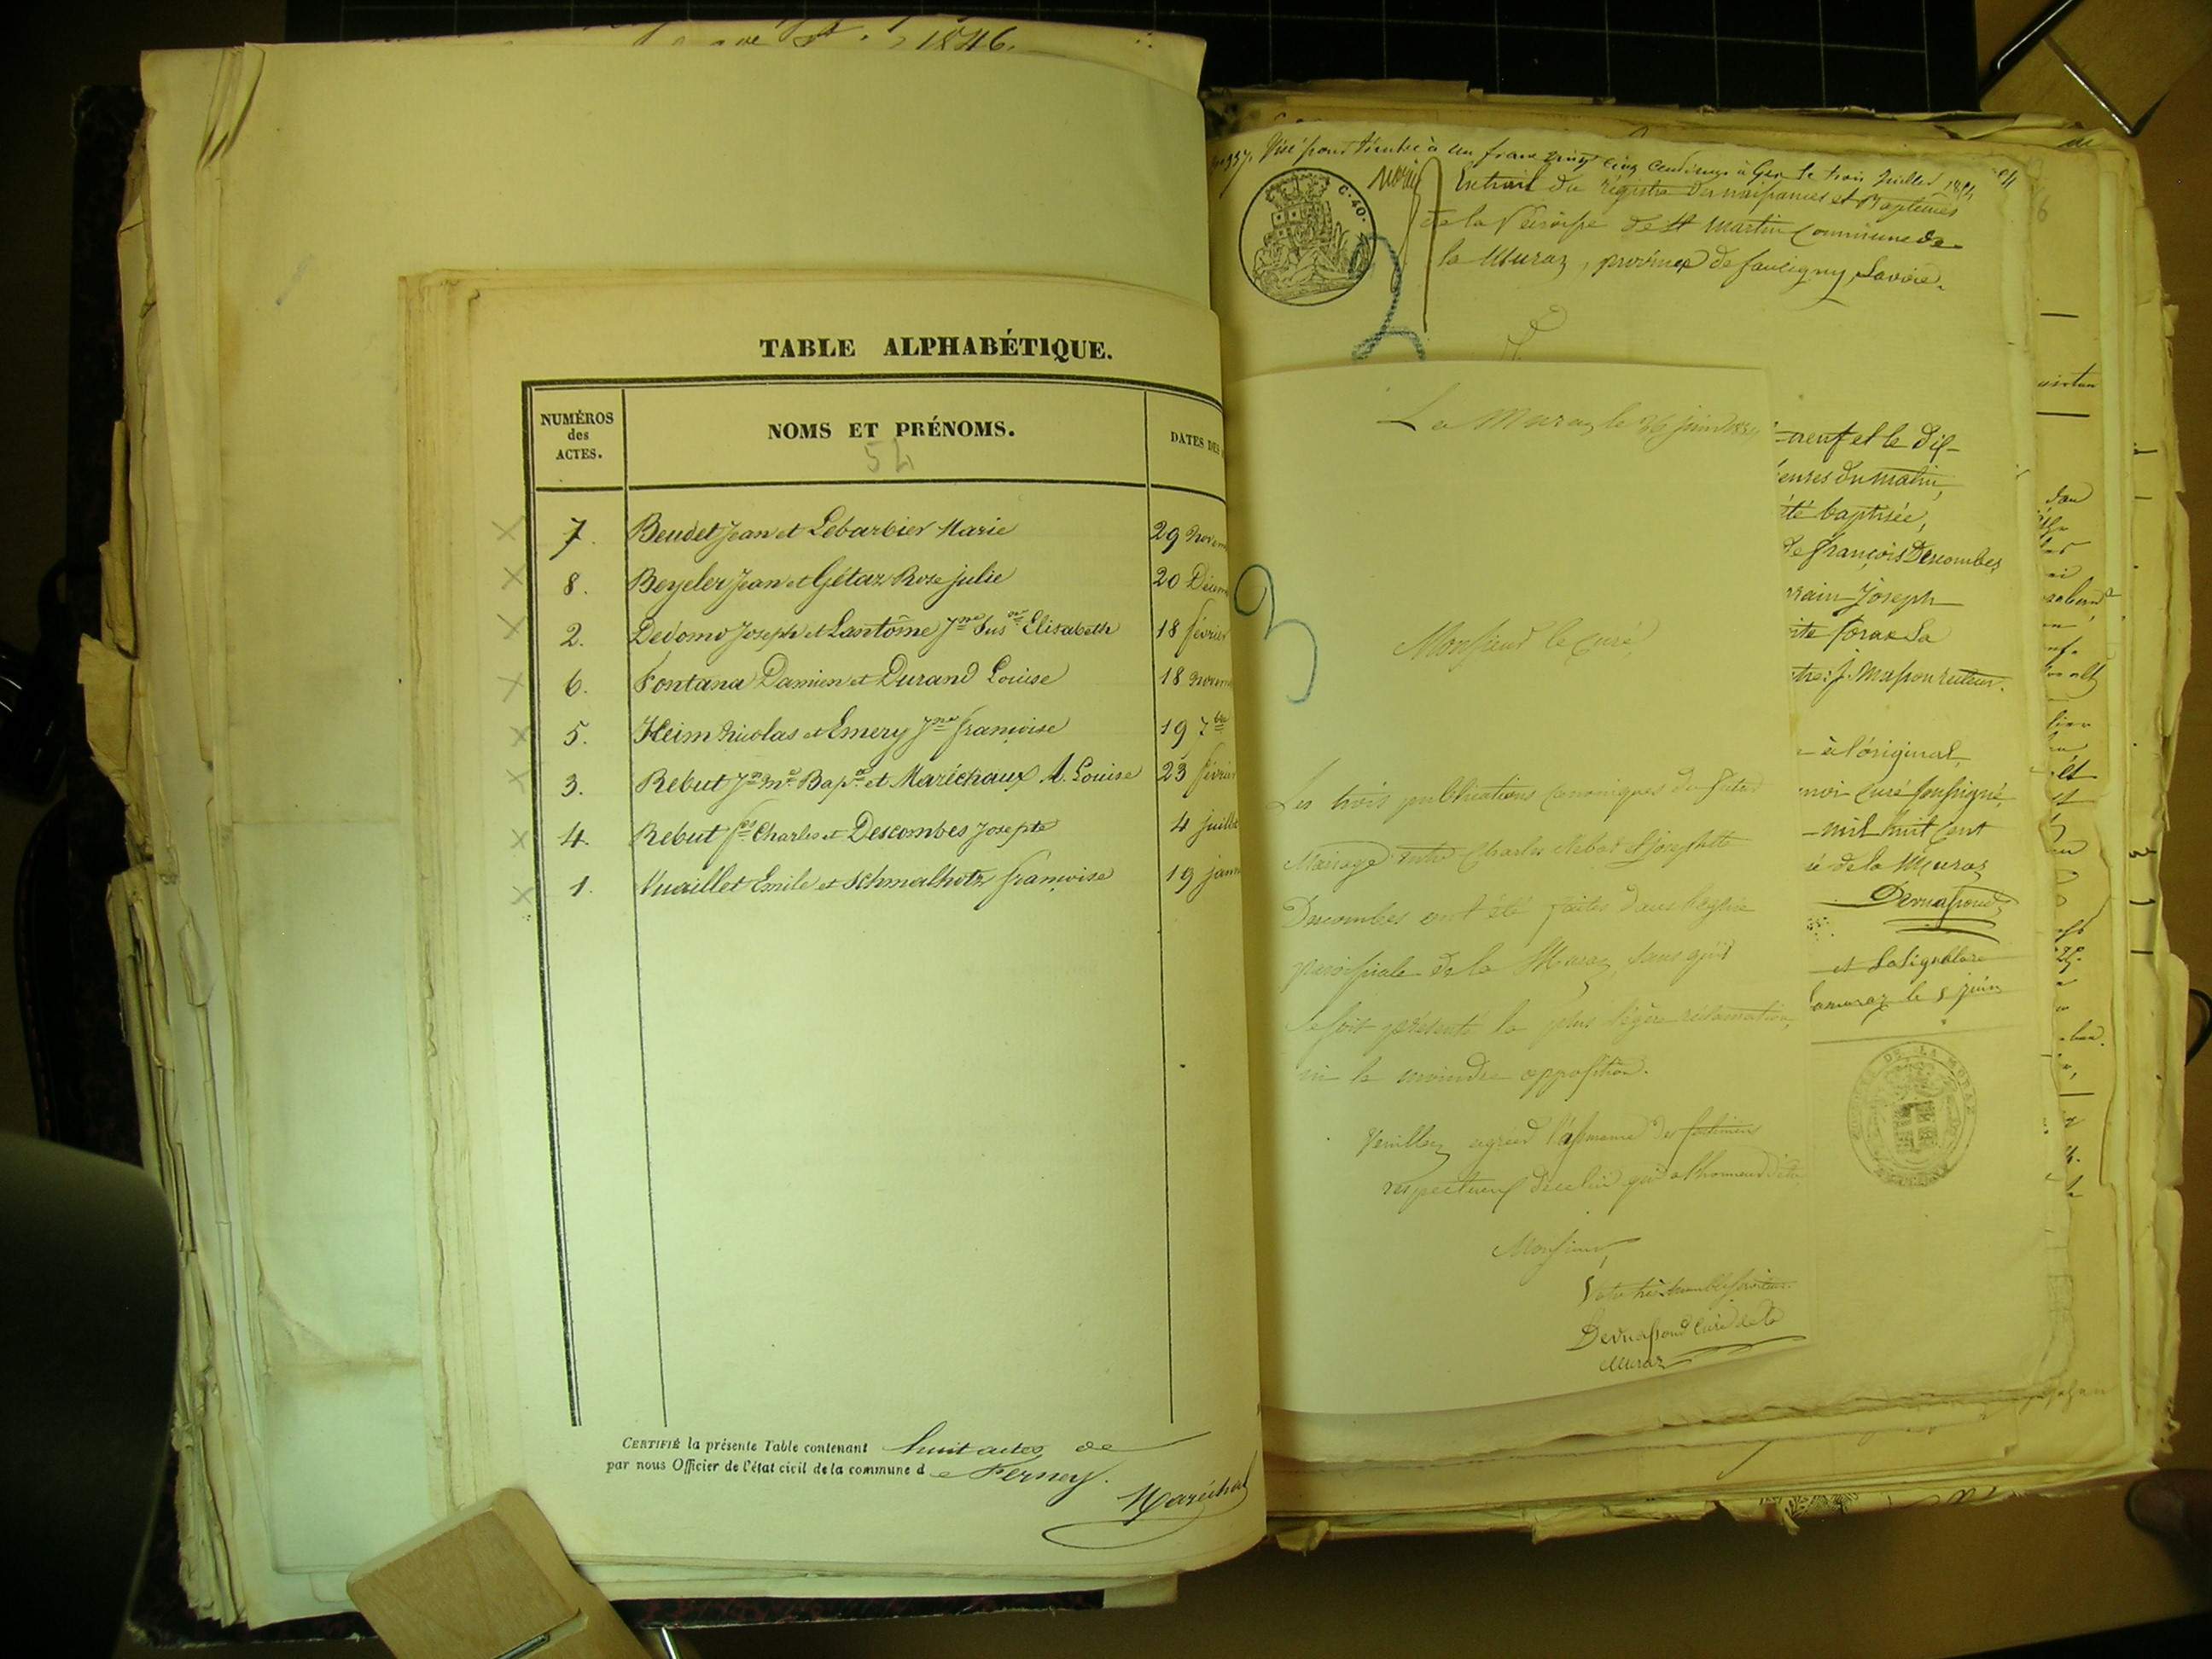 1846.
TABLE ALPHABÉTIQUE.
NUMÉROS des ACTES.
NOMS ET PRÉNOMS.
DATES DES
54
7. Beudet Jean et Lebarbier Marie 29 Novem
8. Beyeler Jean et Gétaz Rose Julie 20 Décem
2. Dedomo Joseph et Lantôme Jne Sus ne Elisabeth 18 février
6. Fontana Damien et Durand Louise 18 novem
5. Heim Nicolas et Emery Jne françoise 19 7bre
3. Rebut Jn Me Bapte et Maréchaux A. Louise 23 février
4. Rebut fçs Charles et Descombes Josepte 4 juillet
1. Vuaillet Emile et Schmalholtz françoise 19 janv
CERTIFIÉ la présente Table contenant huit actes de
par nous Officier de l'état civil de la commune de Ferney.
Maréchal
Visé pour timbre à un franc vingt cinq centimes à Gex le trois Juillet 1854
C. 40.
Extrait du régistre des naissances et Baptêmes
de la Paroisse de St Martin Commune de
la Muraz, province de faucigny Savoie.
La Muraz le 26 juin 1854
Monsieur le curé,
Les trois publications canoniques du futur
Mariage entre Charles Rebut et josephte
Descombes ont été faites dans l'église
paroissiale de la Muraz, sans qu'il
se soit présenté la plus légère réclamation,
ni la moindre opposition.
Veuillez agréer l'assurance des sentimens
respectueux de celui qui a l'honneur d'être
Monsieur,
Votre très humble serviteur
Devnassoud Curé de la
Muraz
neuf et le dix-
eures du matin,
été baptisée,
de françois Descombes
rrain Joseph
ite foraz La
J. Masson recteur.
à l'original
moi curé soussigné,
mil huit cent
é de la Muraz
Devnassoud
et Lasignblare
Lamuraz le 5 juin
DE LA MURAZ